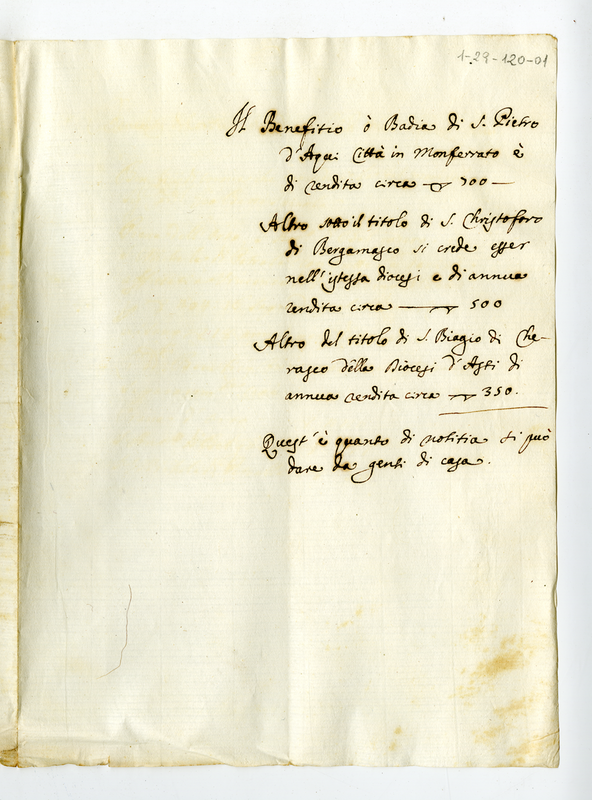 1-29-120-01
Il Benefitio ò Badia di S. Pietro
d'Aqui Città in Monferrato è
di rendita circa — 700 —
Altro sotto il titolo di S. Christoforo
di Bergamasco si crede esser
nell'istessa diocesi e di annua
rendita circa — 500
Altro del titolo di S. Biagio di Che-
rasco della Diocesi d'Asti di
annua rendita circa — 350.
Quest'è quanto di notitia si può
dare da genti di casa.